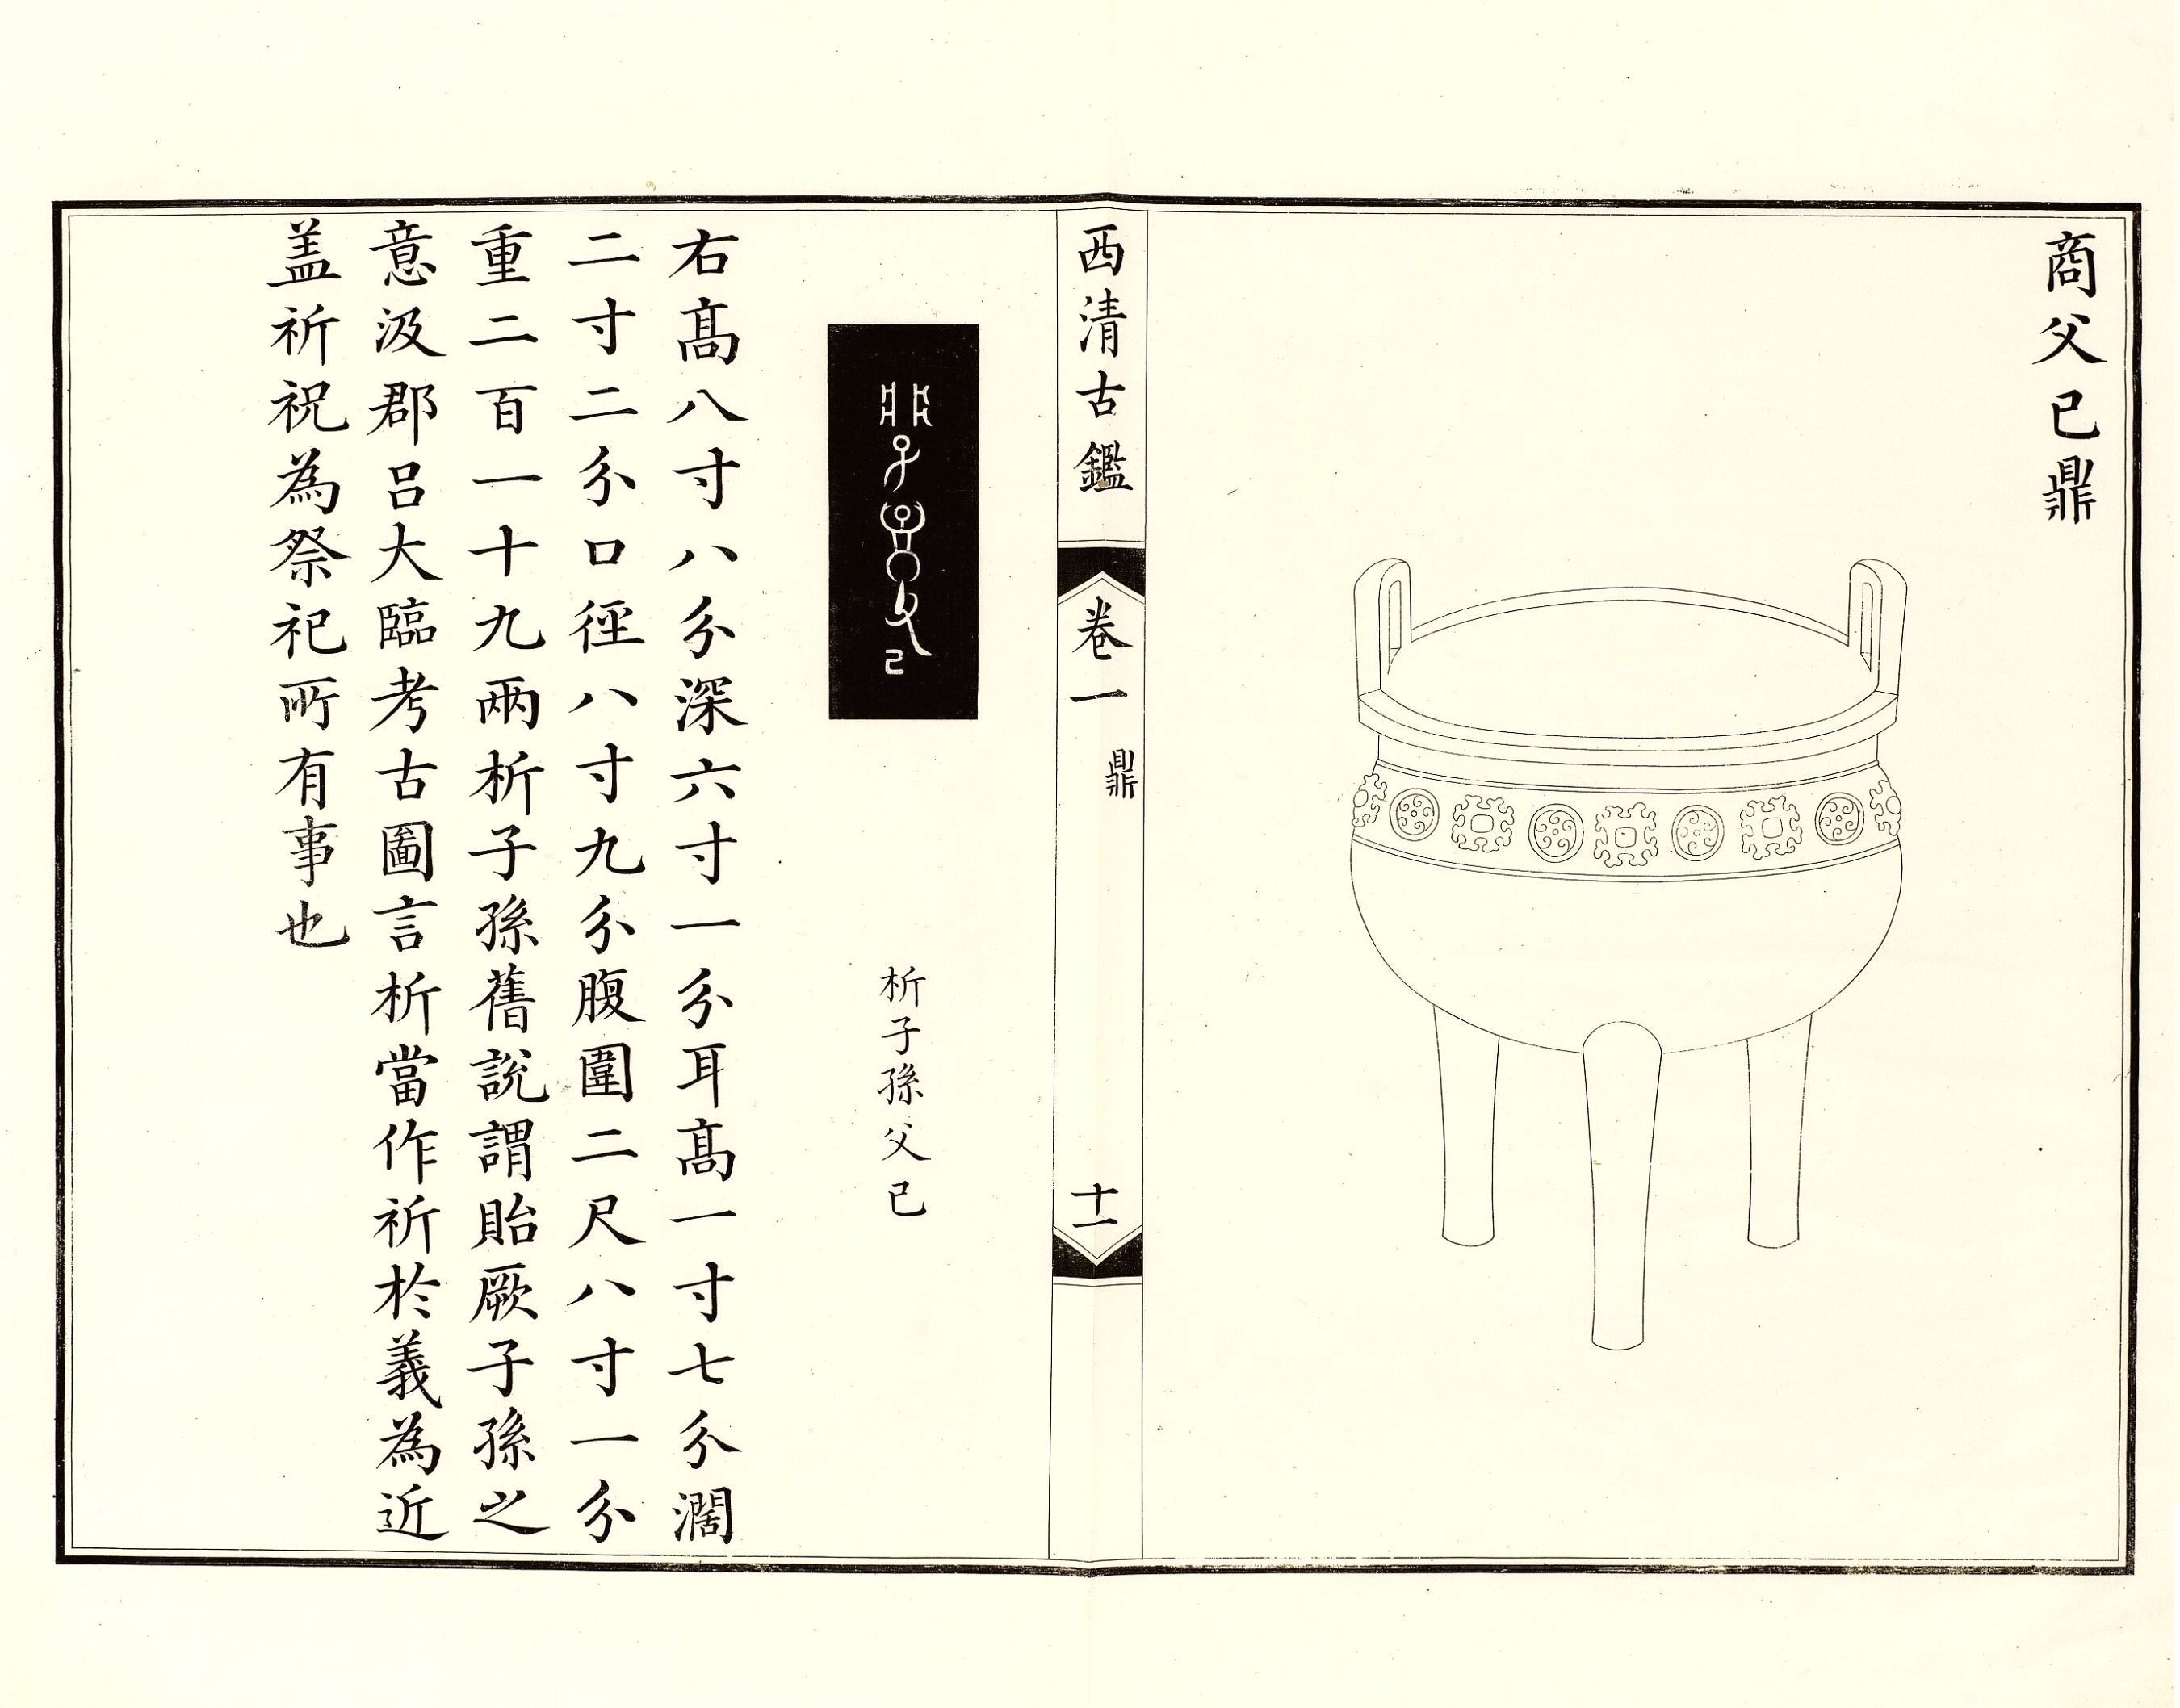 商父己鼎
西清古鑑 卷一 鼎 十一
析子孫父己
右髙八寸八分深六寸一分耳髙一寸七分濶
二寸二分口徑八寸九分腹圍二尺八寸一分
重二百一十九兩析子孫舊說謂貽厥子孫之
意汲郡呂大臨考古圖言析當作祈於義為近
葢祈祝為祭祀所有事也